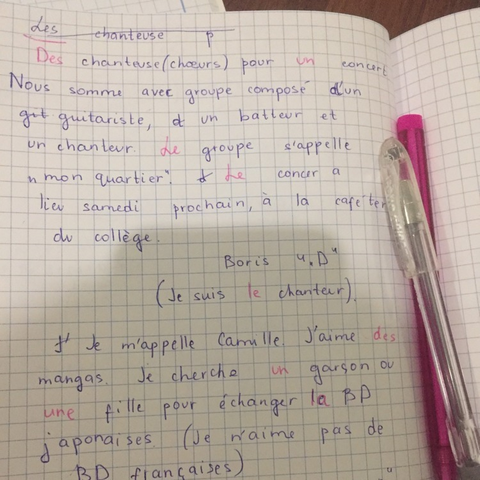 Les chanteuse p
Des chanteuse(chœurs) pour un concert
Nous somme avec groupe composé d'un
guitariste, d un batteur et
un chanteur. Le groupe s'appelle
"mon quartier". Le concer a
lieu samedi prochain, à la caféter
du collège.
Boris 4.D"
(Je suis le chanteur).
Je m'appelle Camille. J'aime des
mangas. Je cherche un garson ou
une fille pour échanger la BD
japonaises (Je n'aime pas de
BD françaises)